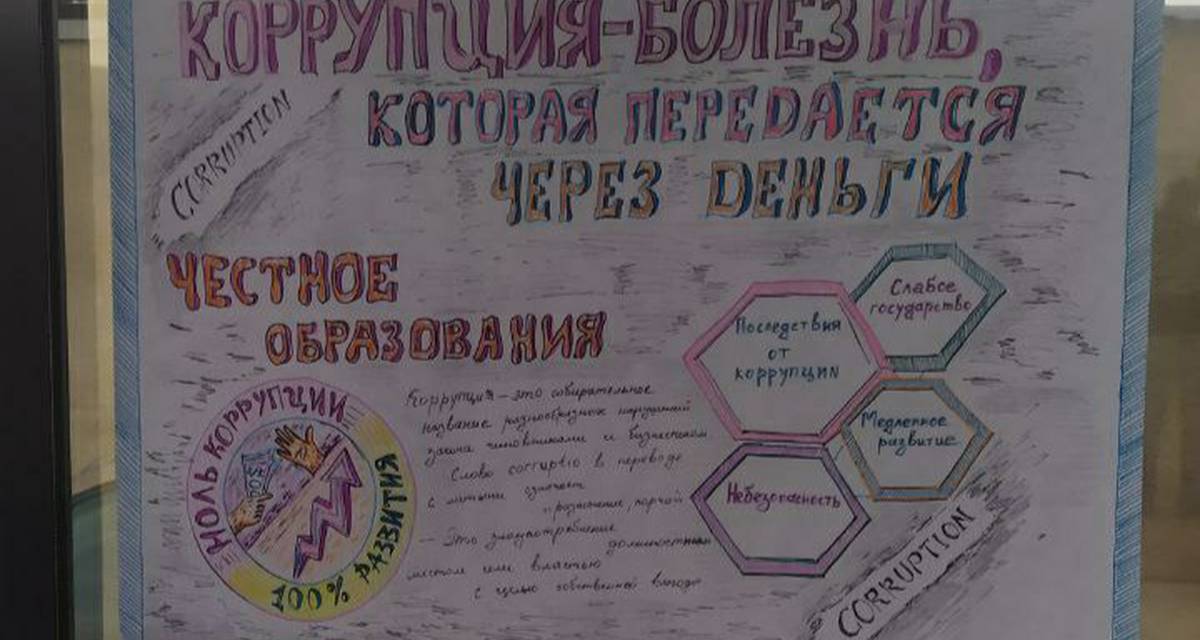 КОРРУПЦИЯ-БОЛЕЗНЬ,
КОТОРАЯ ПЕРЕДАЕТСЯ
ЧЕРЕЗ ДЕНЬГИ
CORRUPTION
ЧЕСТНОЕ
ОБРАЗОВАНИЯ
НОЛЬ КОРРУПЦИИ
100% РАЗВИТИЯ
Коррупция – это собирательное
название разнообразных нарушений
закона чиновниками и бизнесменом
Слово corruptio в переводе
с латыни означает
порчей
– Это злоупотребление
должностным
местом или властью
с целью собственной выгоды
Последствия
от
коррупции
Слабое
государство
Медленное
развитие
Небезопасность
CORRUPTION